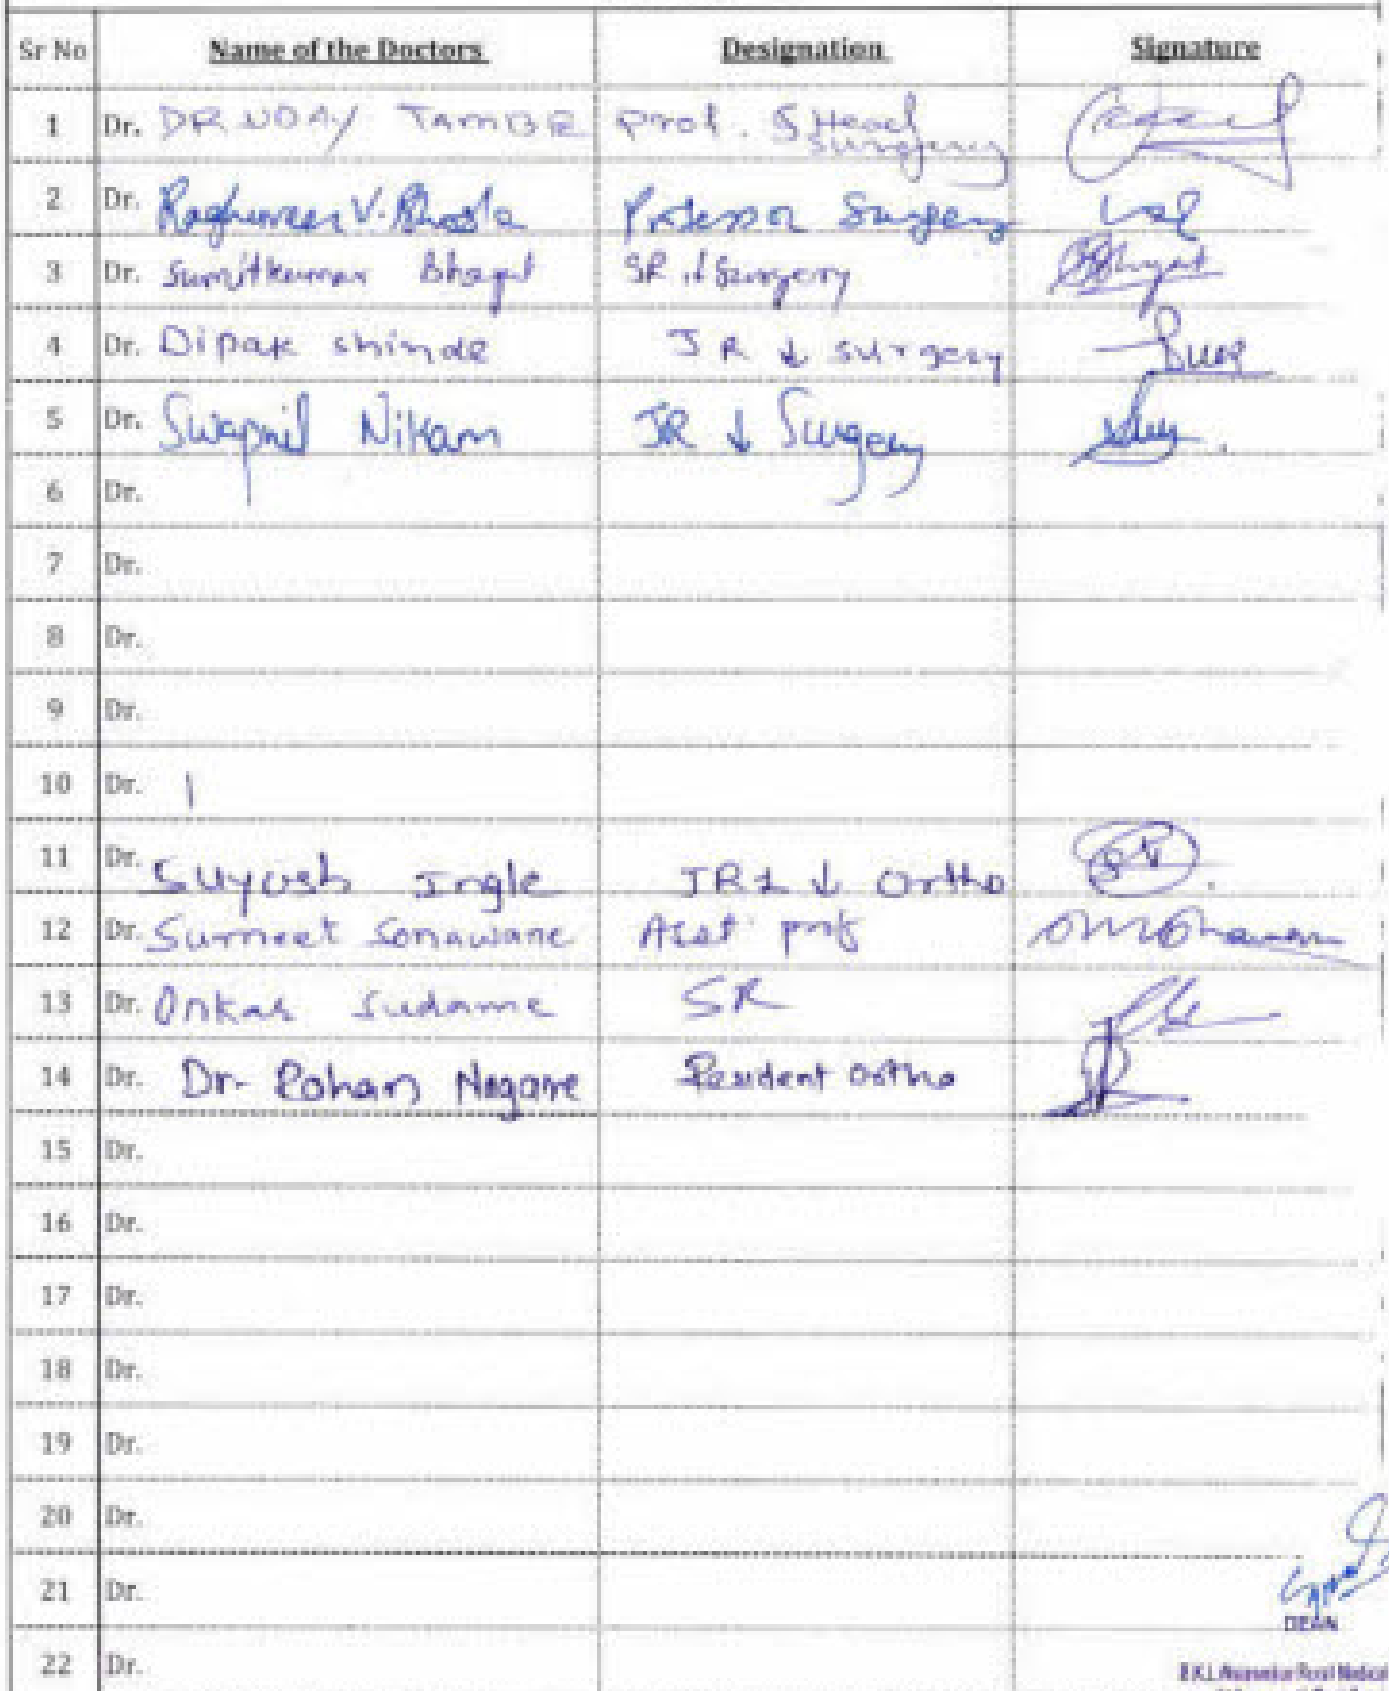 Sr No Name of the Doctors Designation Signature
1 Dr. DR UDAY TAMBE Prof. & Head
Surgery
2 Dr. Raghuveer V. Professor Surgery
3 Dr. Sumitkumar Bhagat SR Surgery
4 Dr. Dipak shinde JR ↓ surgery
5 Dr. Swapnil Nikam JR ↓ Surgery
6 Dr.
7 Dr.
8 Dr.
9 Dr.
10 Dr.
11 Dr. Suyash Ingle JR1 ↓ Ortho
12 Dr. Sumeet Sonawane Asst prof
13 Dr. Onkar Sudame SR
14 Dr. Dr. Rohan Nagare Resident ortho
15 Dr.
16 Dr.
17 Dr.
18 Dr.
19 Dr.
20 Dr.
21 Dr.
DEAN
22 Dr.
B.K.L. Walawalkar Rural Medical